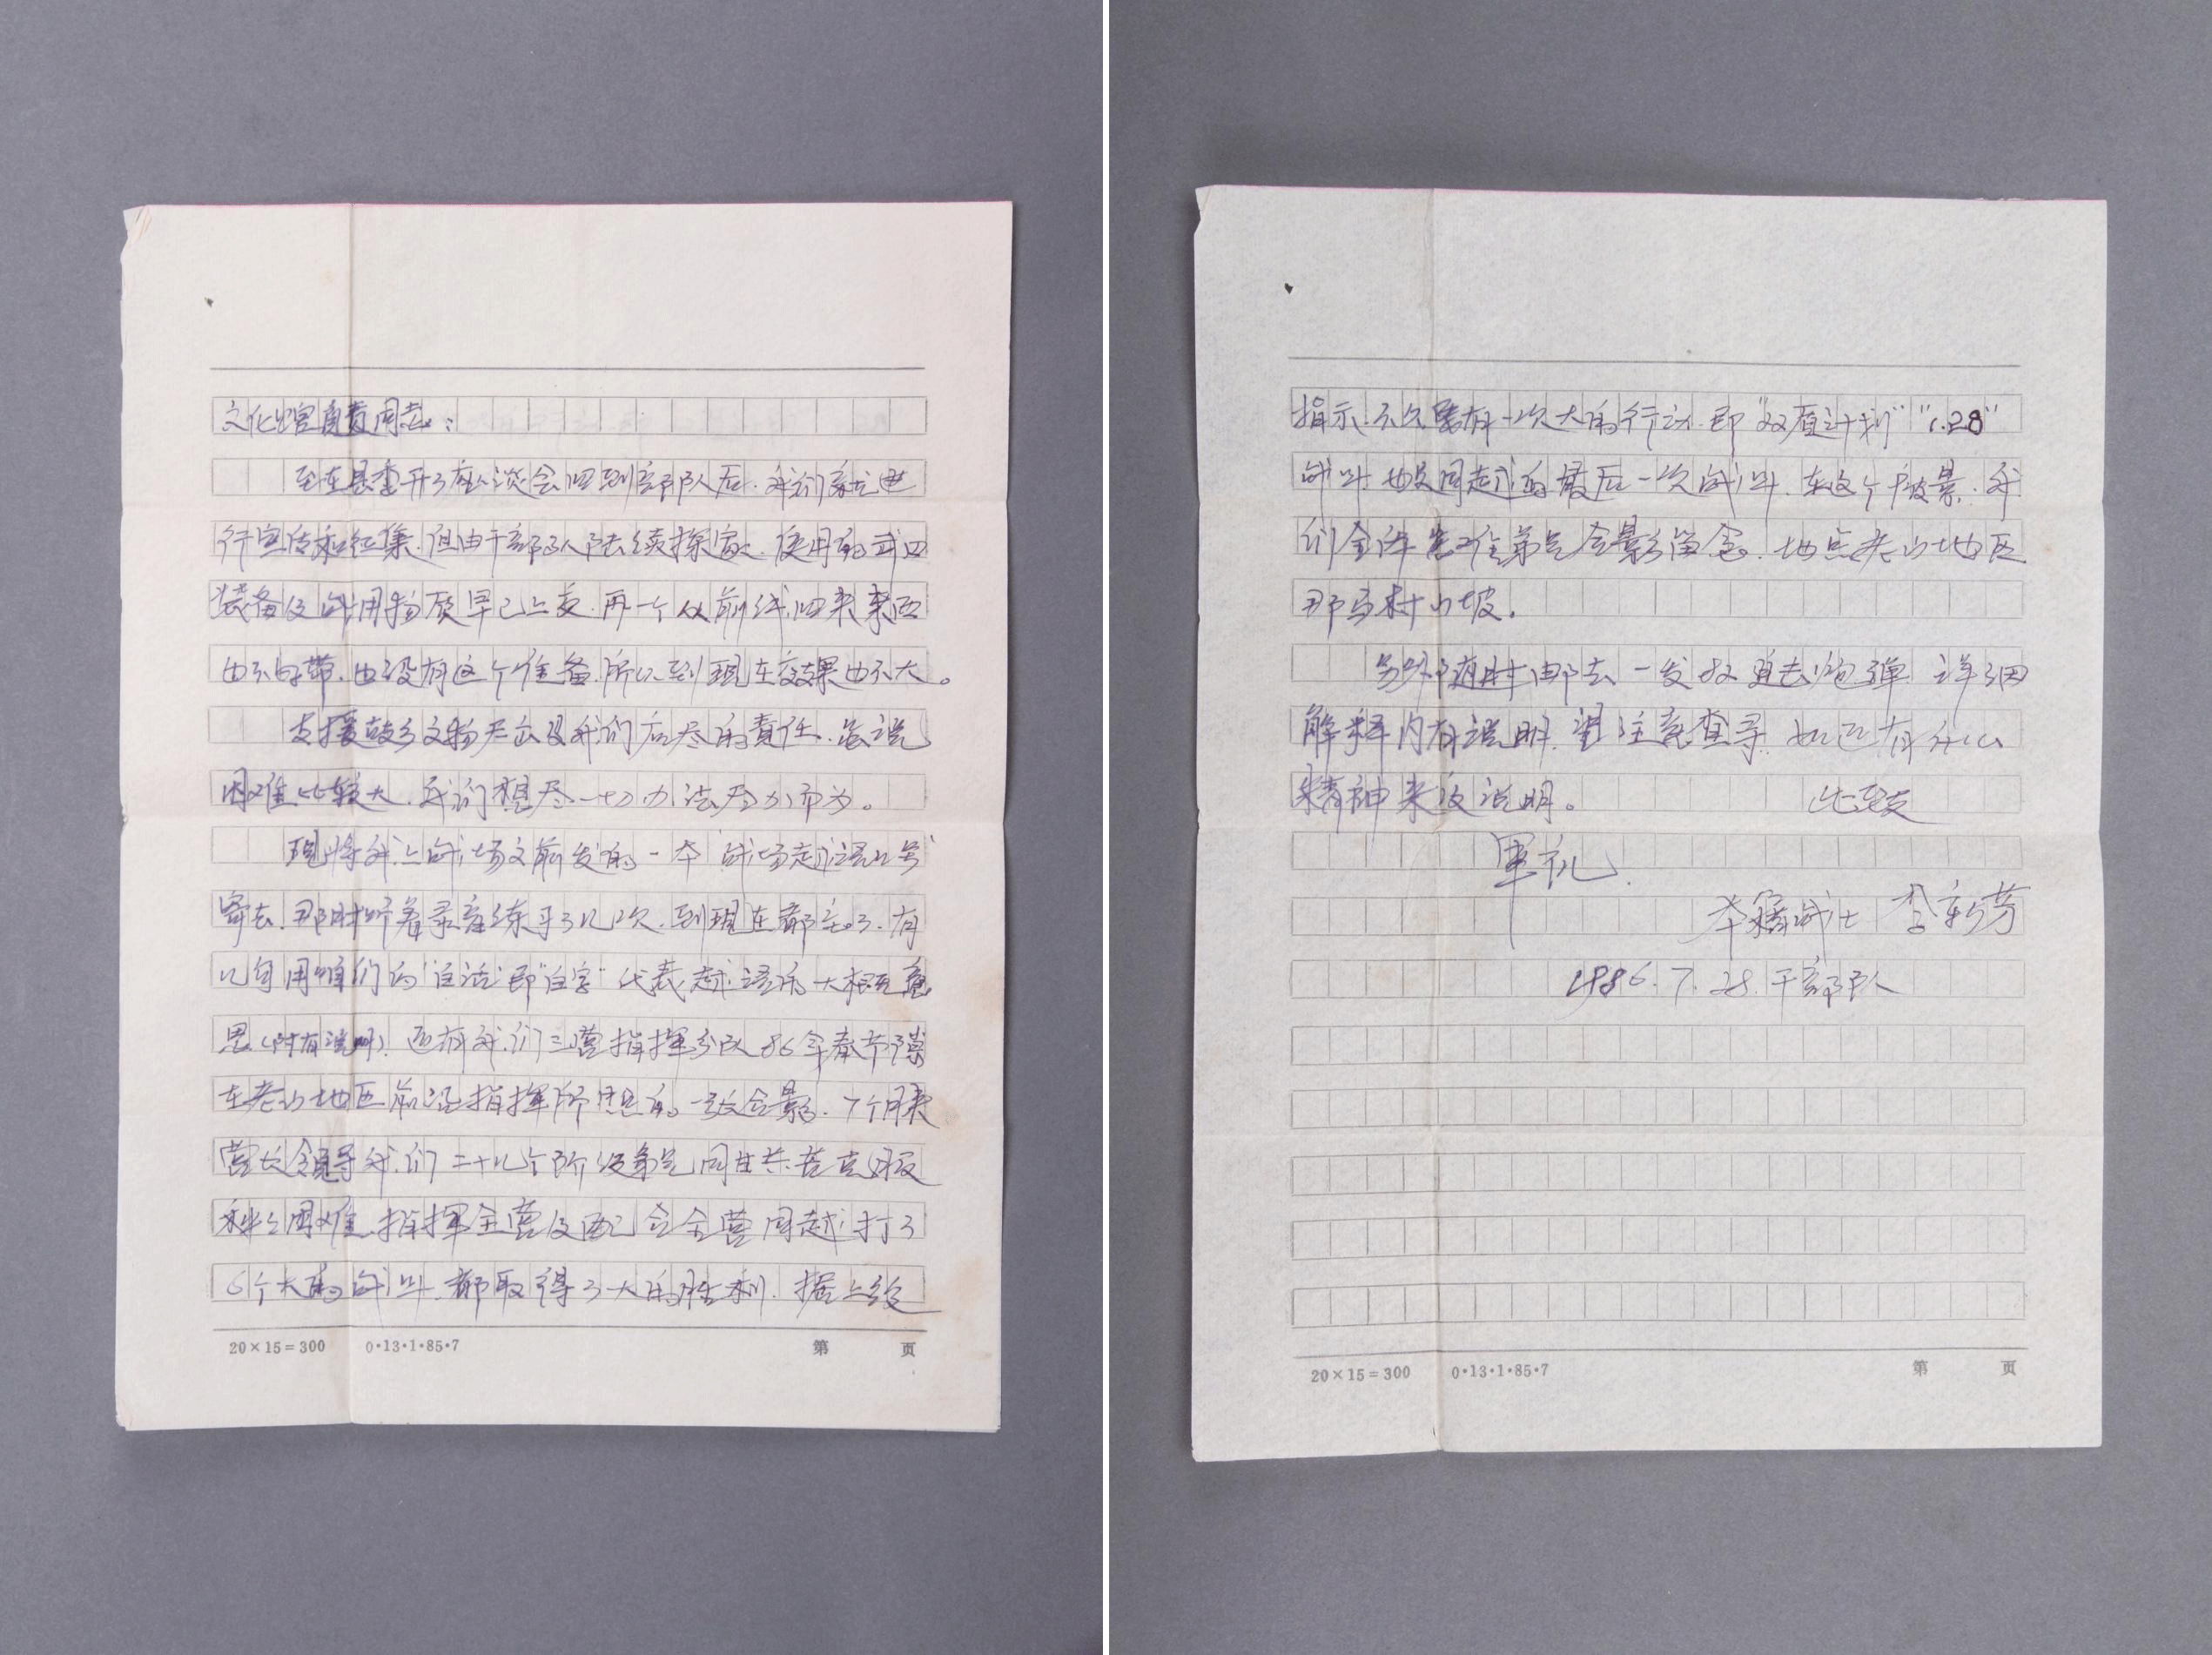 文化馆负责同志：
至在县委开了座谈会回到部队后.我们就进
行宣传和征集.但由于部队陆续探家.使用的武四
装备及战用物质早已上交.再一个从前线回来东西
也不好带.也没有这个准备.所以到现在效果也不大。
支援故乡文物展出是我们应尽的责任.虽说
困难比较大.我们想尽一切办法尽力而为。
现将我上战场之前发的一本“战场越语口号”
寄去.那时听着录音练习了几次.到现在都忘了.有
几句用咱们的“白话”即“白字”代表越语的大概意
思(附有说明).还有我们三营指挥分队86年春节际
在老山地区前沿指挥所照的一张合影.7个月来
营长领导我们二十几个阶级弟兄同甘共苦克服
种种困难.指挥全营及配合全营同越打了
6个大的战斗.都取得了大的胜利.据上级
指示.不久要有一次大的行动.即“双原计划”“1.28”
战斗.也是同越的最后一次战斗.在这个背景.我
们全体单位弟兄合影留念.地点老山地区
那马村山坡.
另外随时邮去一发82迫击炮弹.详细
解释内有说明.望注意查寻.如还有什么
精神来沒说明。 此致
军礼.
本籍战士 李新芳
1986.7.28.于部队
20×15=300 0·13·1·85·7 第 页
20×15=300 0·13·1·85·7 第 页